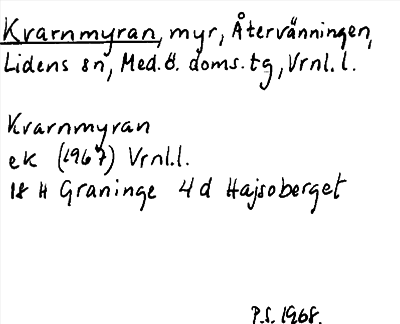 Kvarnmyran, myr, Återvänningen,
Lidens sn, Med.ö. doms.tg, Vrnl.l.
Kvarnmyran
ek (1967) Vrnl.l.
18 H Graninge 4 d Hajsoberget
P.S. 1968.